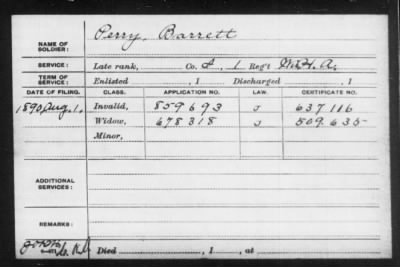 NAME OF SOLDIER: Perry, Barrett
SERVICE: Late rank, Co. L, 1 Reg't H.A.
TERM OF SERVICE: Enlisted , 1 Discharged , 1
DATE OF FILING. CLASS. APPLICATION NO. LAW. CERTIFICATE NO.
1890 Aug. 1. Invalid, 859693 J 637116
Widow, 678318 J 509.635
Minor,
ADDITIONAL SERVICES:
REMARKS:
Died , 1 , at